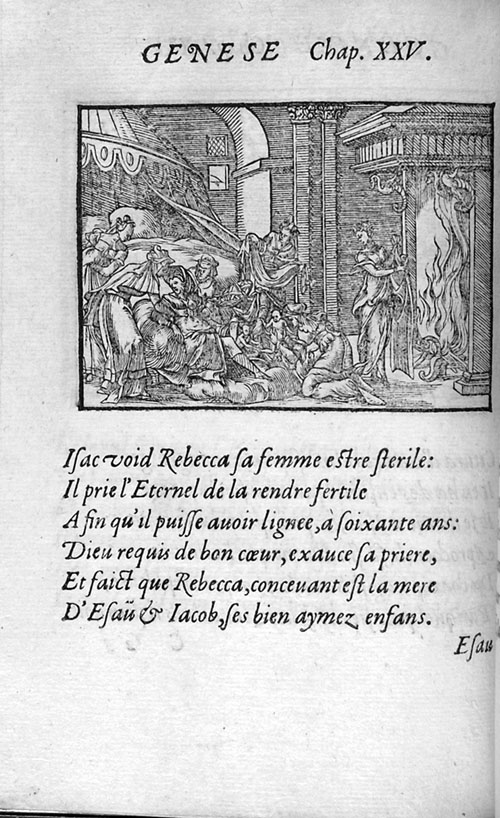 GENESE Chap. XXV.
Iſac void Rebecca ſa femme eſtre ſterile:
Il prie l'Eternel de la rendre fertile
Afin qu'il puiſſe auoir lignee, à ſoixante ans:
Dieu requis de bon cœur, exauce ſa priere,
Et faict que Rebecca, conceuant eſt la mere
D'Eſaü & Iacob, ſes bien aymez enfans.
Eſau